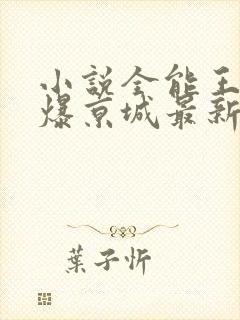 小説全能王
爆京城最新
葉子忻